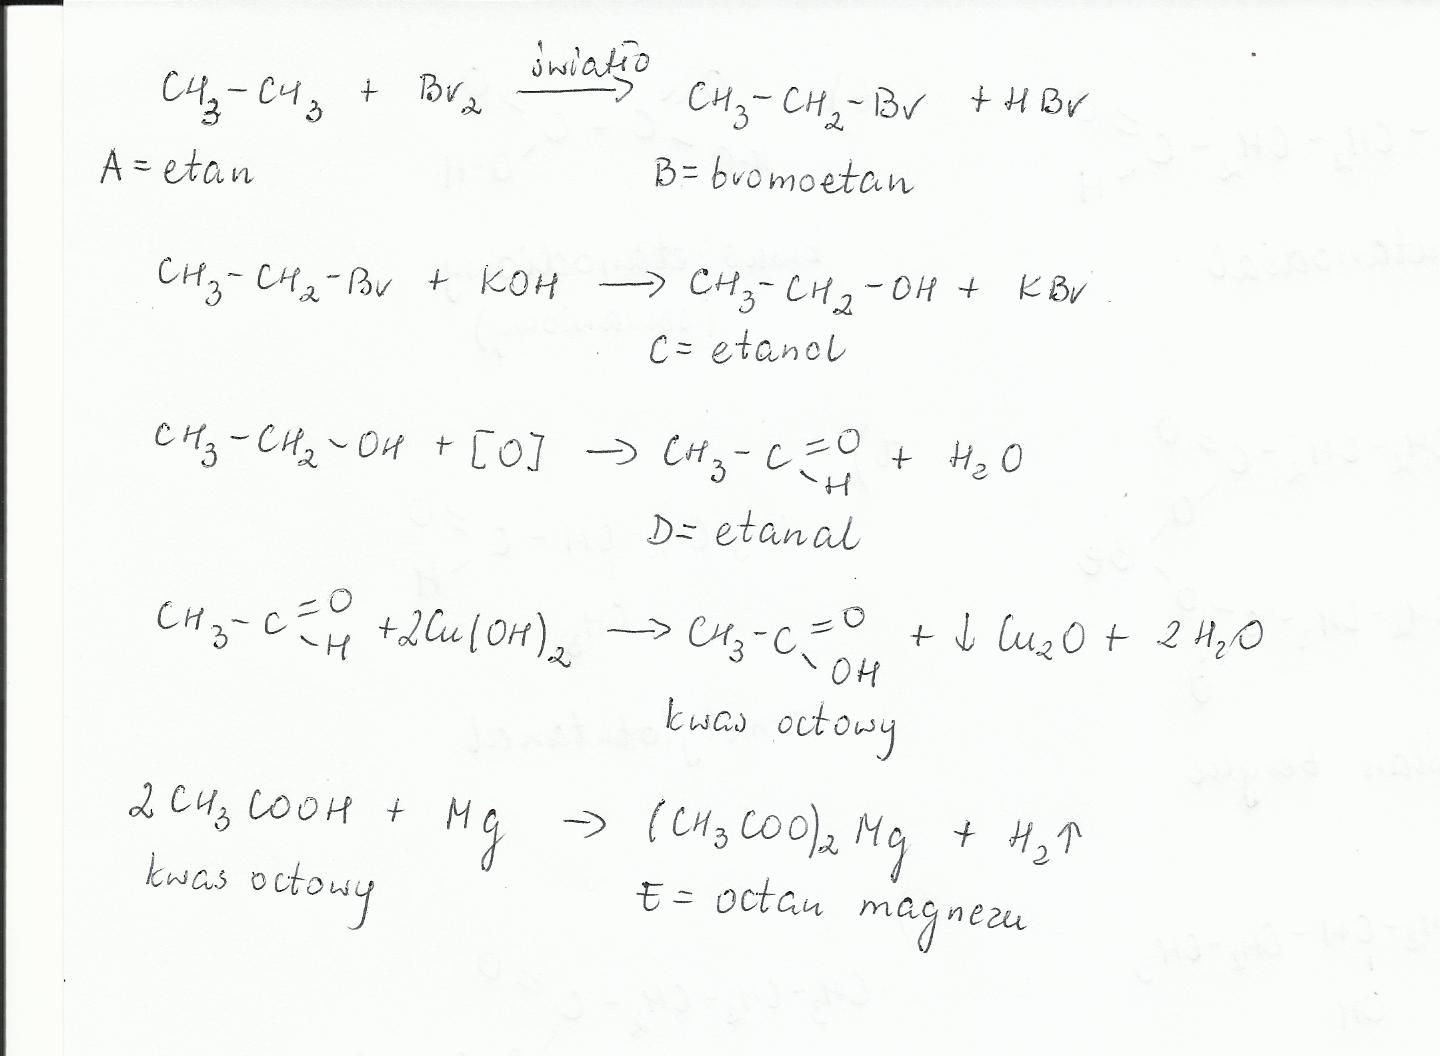 CH3-CH3 + Br2 światło→ CH3-CH2-Br + HBr
A = etan B = bromoetan
CH3-CH2-Br + KOH → CH3-CH2-OH + KBr
C = etanol
CH3-CH2-OH + [O] → CH3-C=O-H + H2O
D = etanal
CH3-C=O-H + 2Cu(OH)2 → CH3-C=O-OH + ↓Cu2O + 2H2O
kwas octowy
2CH3COOH + Mg → (CH3COO)2Mg + H2↑
kwas octowy E = octan magnezu